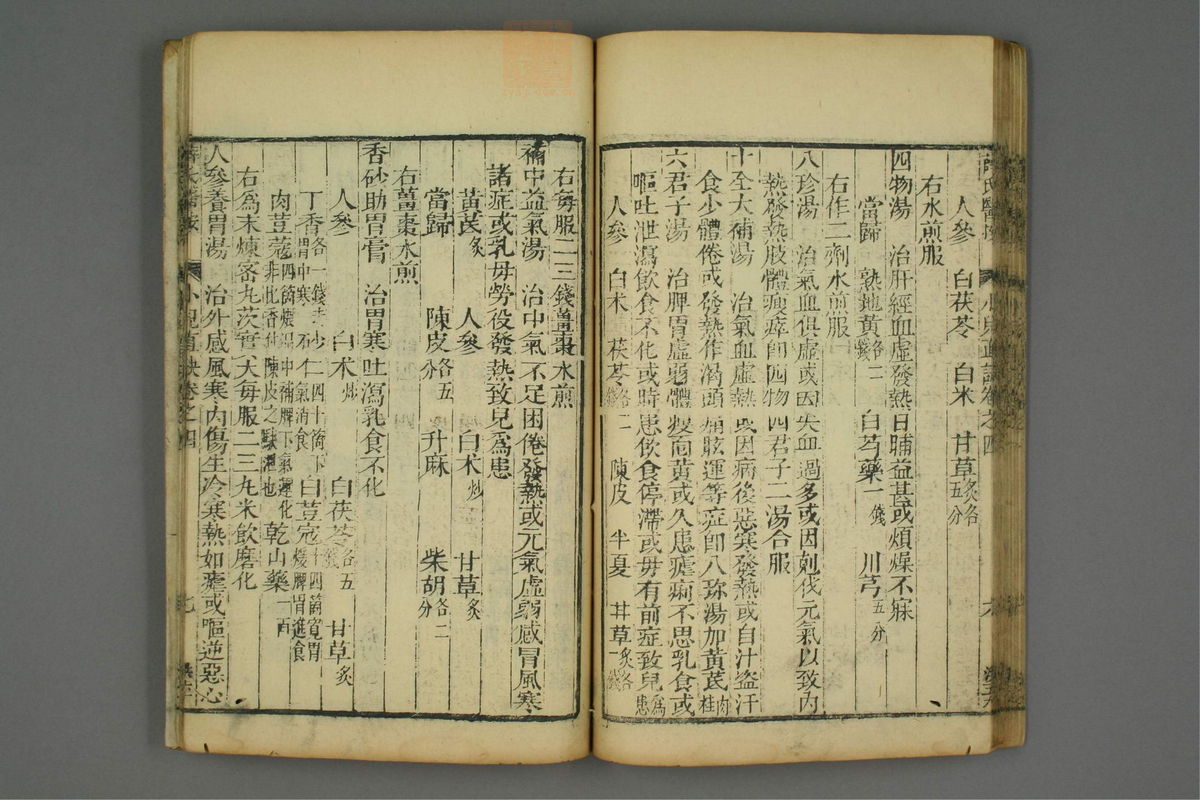 人參 白茯苓 白术 甘草炙各五分
右水煎服
四物湯 治肝經血虛發熱日晡益甚或煩燥不寐
當歸 熟地黃各二錢 白芍藥一錢 川芎五分
右作二劑水煎服
八珍湯 治氣血俱虛或因失血過多或因剋伐元氣以致内
熱發熱肢體瘦瘁即四物四君子二湯合服
十全大補湯 治氣血虛熱或因病後惡寒發熱或自汁盜汗
食少體倦或發熱作渴頭痛眩運等症卽八珎湯加黃芪肉桂
六君子湯 治脾胃虛弱體瘦面黃或久患瘧痢不思乳食或
嘔吐泄瀉飲食不化或時患飲食停滯或毋有前症致兒爲患
人參 白术 茯苓各二錢 陳皮 半夏 甘草炙各一錢
右每服二三錢薑棗水煎
補中益氣湯 治中氣不足困倦發熱或元氣虛弱感冒風寒
諸症或乳毋勞役發熱致兒爲患
黃芪炙 人參 白术炒 甘草炙
當歸 陳皮各五分 升麻 柴胡各二分
右薑棗水煎
香砂助胃膏 治胃寒吐瀉乳食不化
人參 白术炒 白茯苓各五錢 甘草炙
丁香各一錢 胃中寒 砂仁四十箇下氣消食 白荳寇十四箇寬胃煖脾胃進食
肉荳蔻四箇煨 乾山藥一兩
右爲末煉蜜丸茨實大每服二三丸米飲磨化
人參養胃湯 治外感風寒内傷生冷寒熱如瘧或嘔逆惡心
卷之四
七